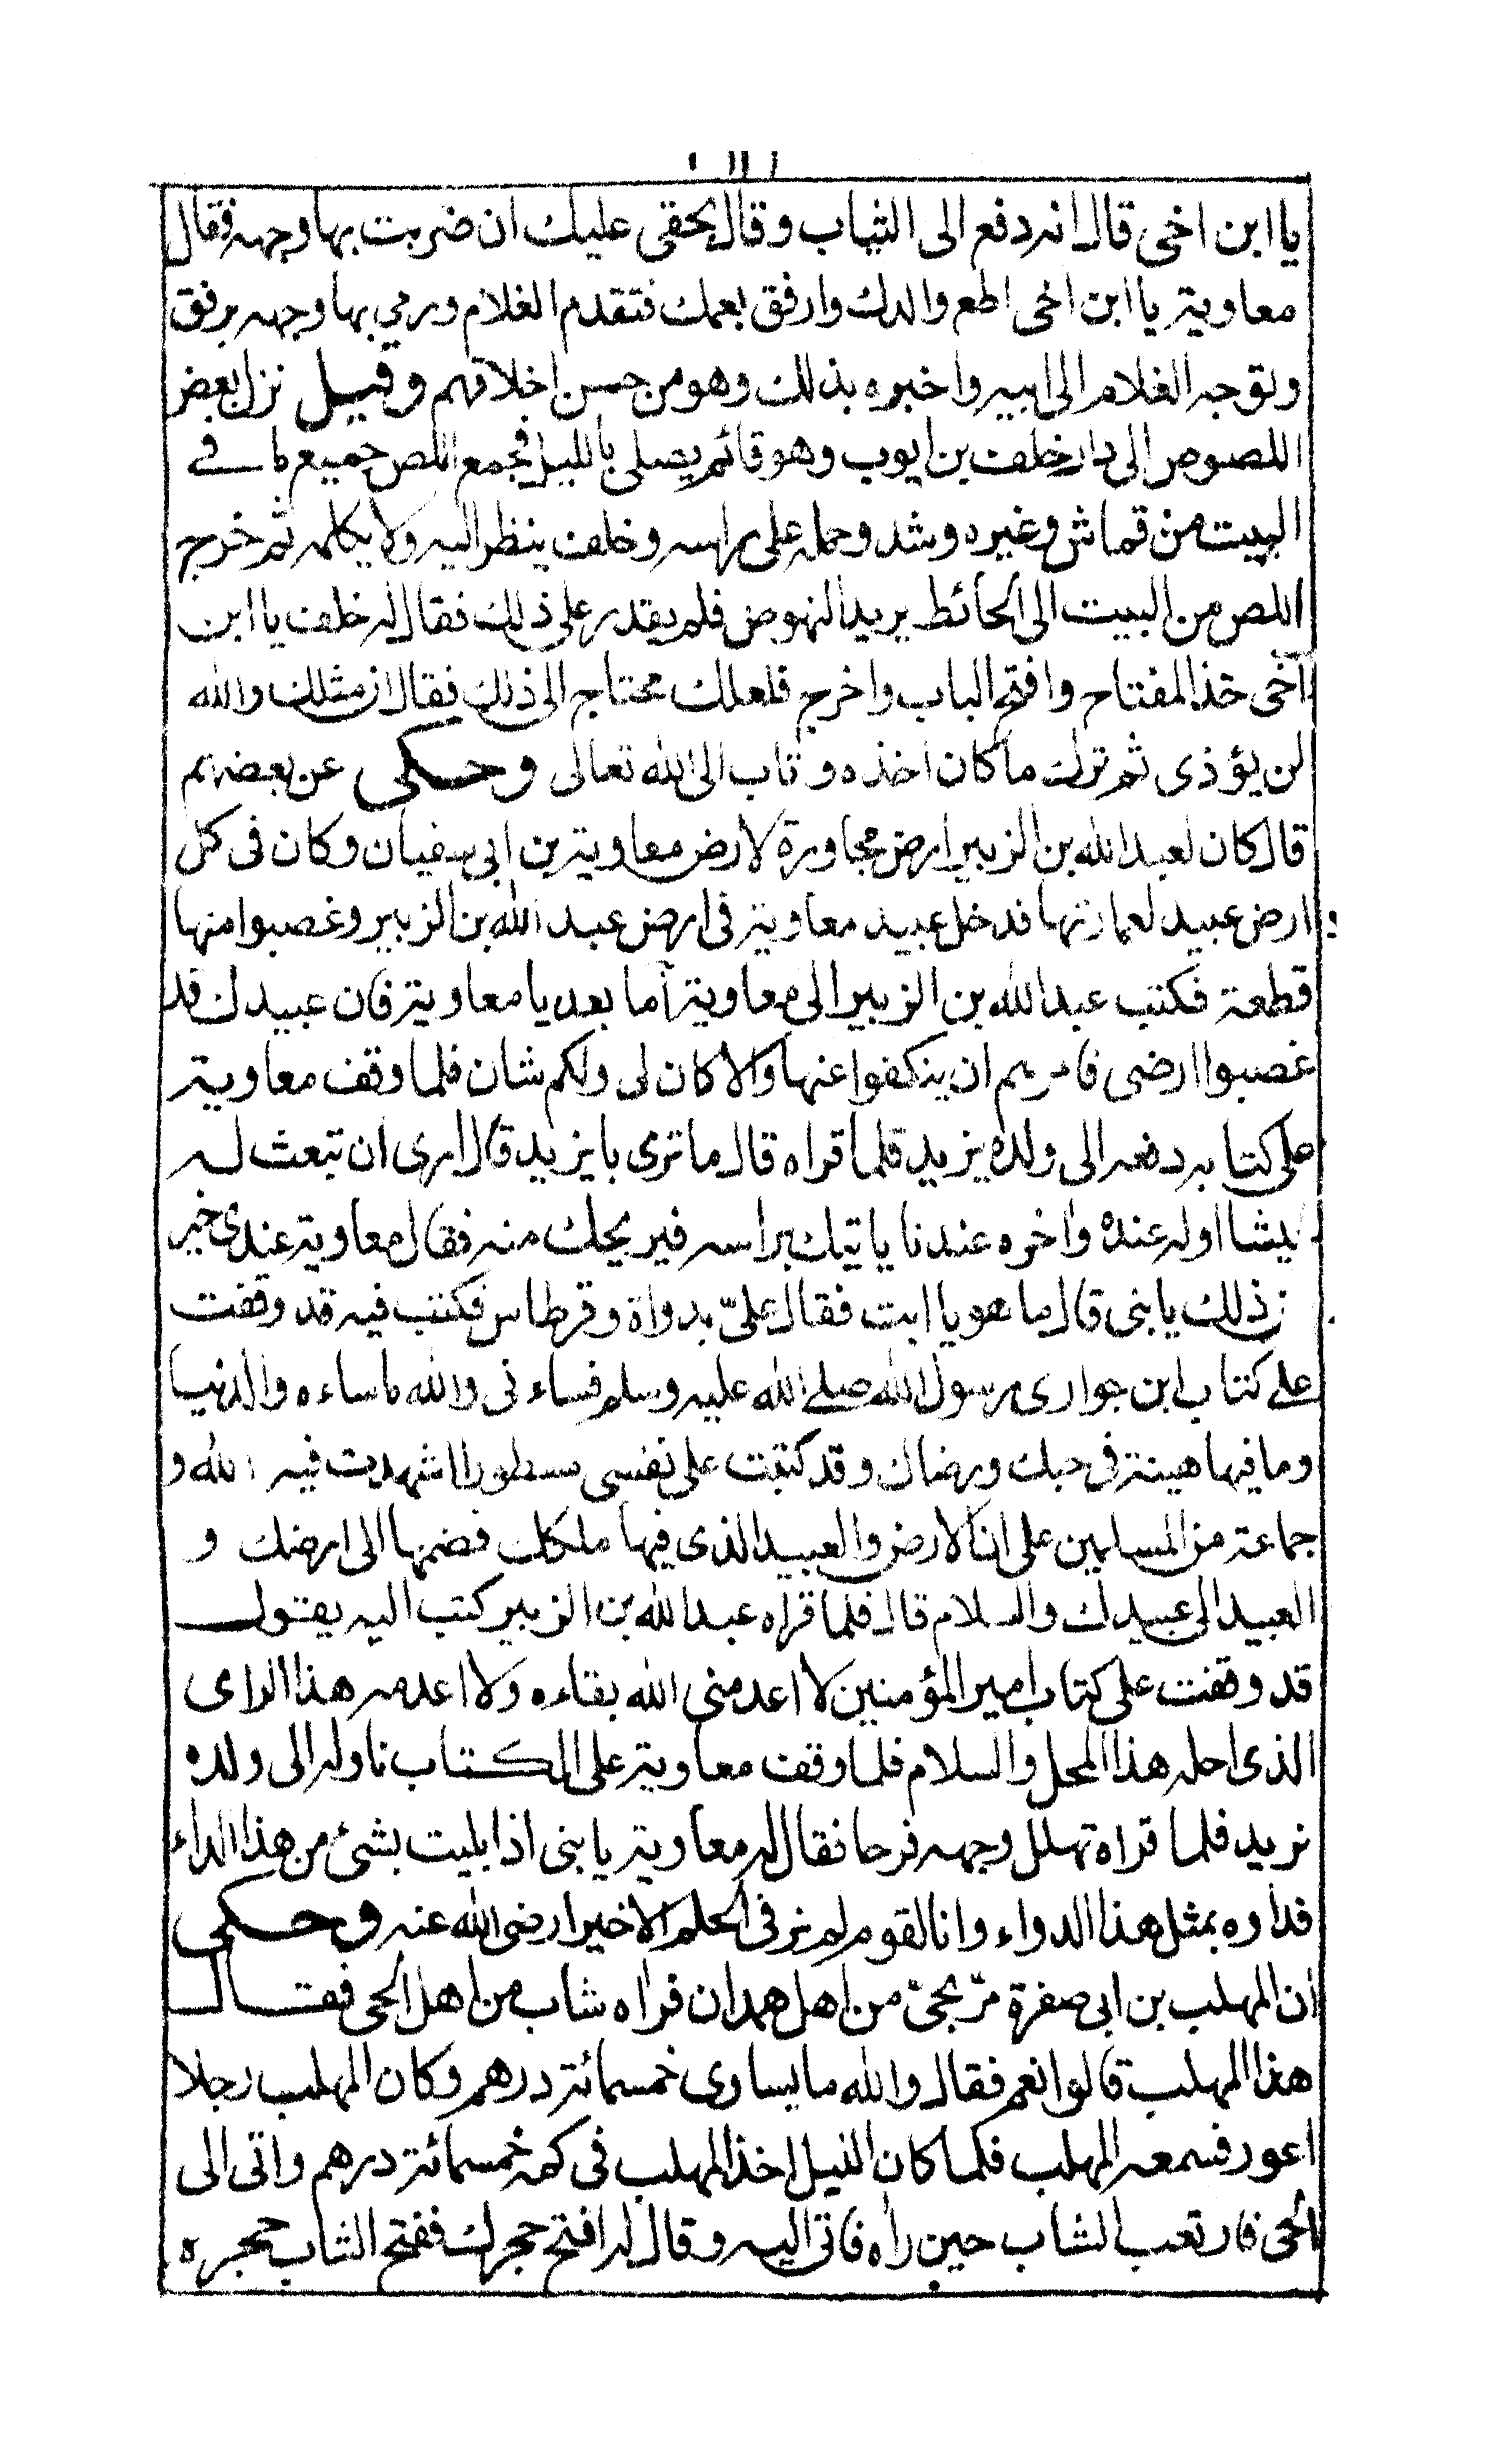 يا ابن اخى قال انه دفع الى الثياب وقال بحقى عليك ان ضربت بها وجهه فقال
معاوية يا ابن اخى اطع والدك وارفق بعمك فتقدم الغلام ورمي بها وجهه برفق
وتوجه الغلام الى ابيه واخبره بذلك وهو من حسن اخلاقهم وقيل نزل بعض
اللصوص الى دار خلف بن ايوب وهو قائم يصلى بالليل فجمع اللص جميع ما في
البيت من قماش وغيره وشد وحمله على راسه وخلف ينظر اليه ولا يكلمه ثم خرج
اللص من البيت الى الحائط يريد النهوض فلم يقدر على ذلك فقال له خلف يا ابن
اخى خذ المفتاح وافتح الباب واخرج فلعلك محتاج الى ذلك فقال ان مثلك والله
لن يؤذى ثم ترك ما كان اخذه وتاب الى الله تعالى وحكى عن بعضهم
قال كان لعبد الله بن الزبير ارض مجاورة لارض معاوية بن ابى سفيان وكان فى كل
ارض عبيد لعمارتها فدخل عبيد معاوية فى ارض عبد الله بن الزبير وغصبوا منها
قطعة فكتب عبد الله بن الزبير الى معاوية أما بعد يا معاوية فان عبيدك قد
غصبوا ارضى فامرهم ان ينكفوا عنها والا كان لى ولكم شان فلما وقف معاوية
على كتابه دفعه الى ولده يزيد فلما قراه قال ما ترى يا يزيد قال ارى ان تبعث له
جيشا اوله عنده واخره عندنا ياتيك براسه فيريحك منه فقال معاوية عندى خير
من ذلك يا بنى قال ما هو يا ابت فقال علىّ بدواة وقرطاس فكتب فيه قد وقفت
على كتاب ابن حوارى رسول الله صلے الله عليه وسلم فساءنى والله ما ساءه والدنيا
وما فيها هينة فى حبك ورضاك وقد كتبت على نفسى مسطورا اشهدت فيه الله و
جماعة من المسلمين على ان الارض والعبيد الذى فيها ملكك فضمها الى ارضك و
العبيد الى عبيدك والسلام قال فلما قراه عبد الله بن الزبير كتب اليه يقول
قد وقفت على كتاب امير المؤمنين لا اعدمنى الله بقاءه ولا اعدمه هذا الراى
الذى احله هذا المحل والسلام فلما وقف معاوية على الكتاب ناوله الى ولده
يزيد فلما قراه تهلل وجهه فرحا فقال له معاوية يا بنى اذا بليت بشئ من هذا الداء
فداوه بمثل هذا الدواء وانا لقوم لم نر فى الحلم الا خيرا رضى الله عنه وحكى
ان المهلب بن ابى صفرة مرّ بحىّ من اهل همدان فراه شاب من اهل الحى فقال
هذا المهلب قالوا نعم فقال والله ما يساوى خمسمائة درهم وكان المهلب رجلا
اعور فسمعه المهلب فلما كان الليل اخذ المهلب فى كمه خمسمائة درهم واتى الى
الحى فارتعب الشاب حين راه فاتى اليه وقال له افتح حجرك ففتح الشاب حجره